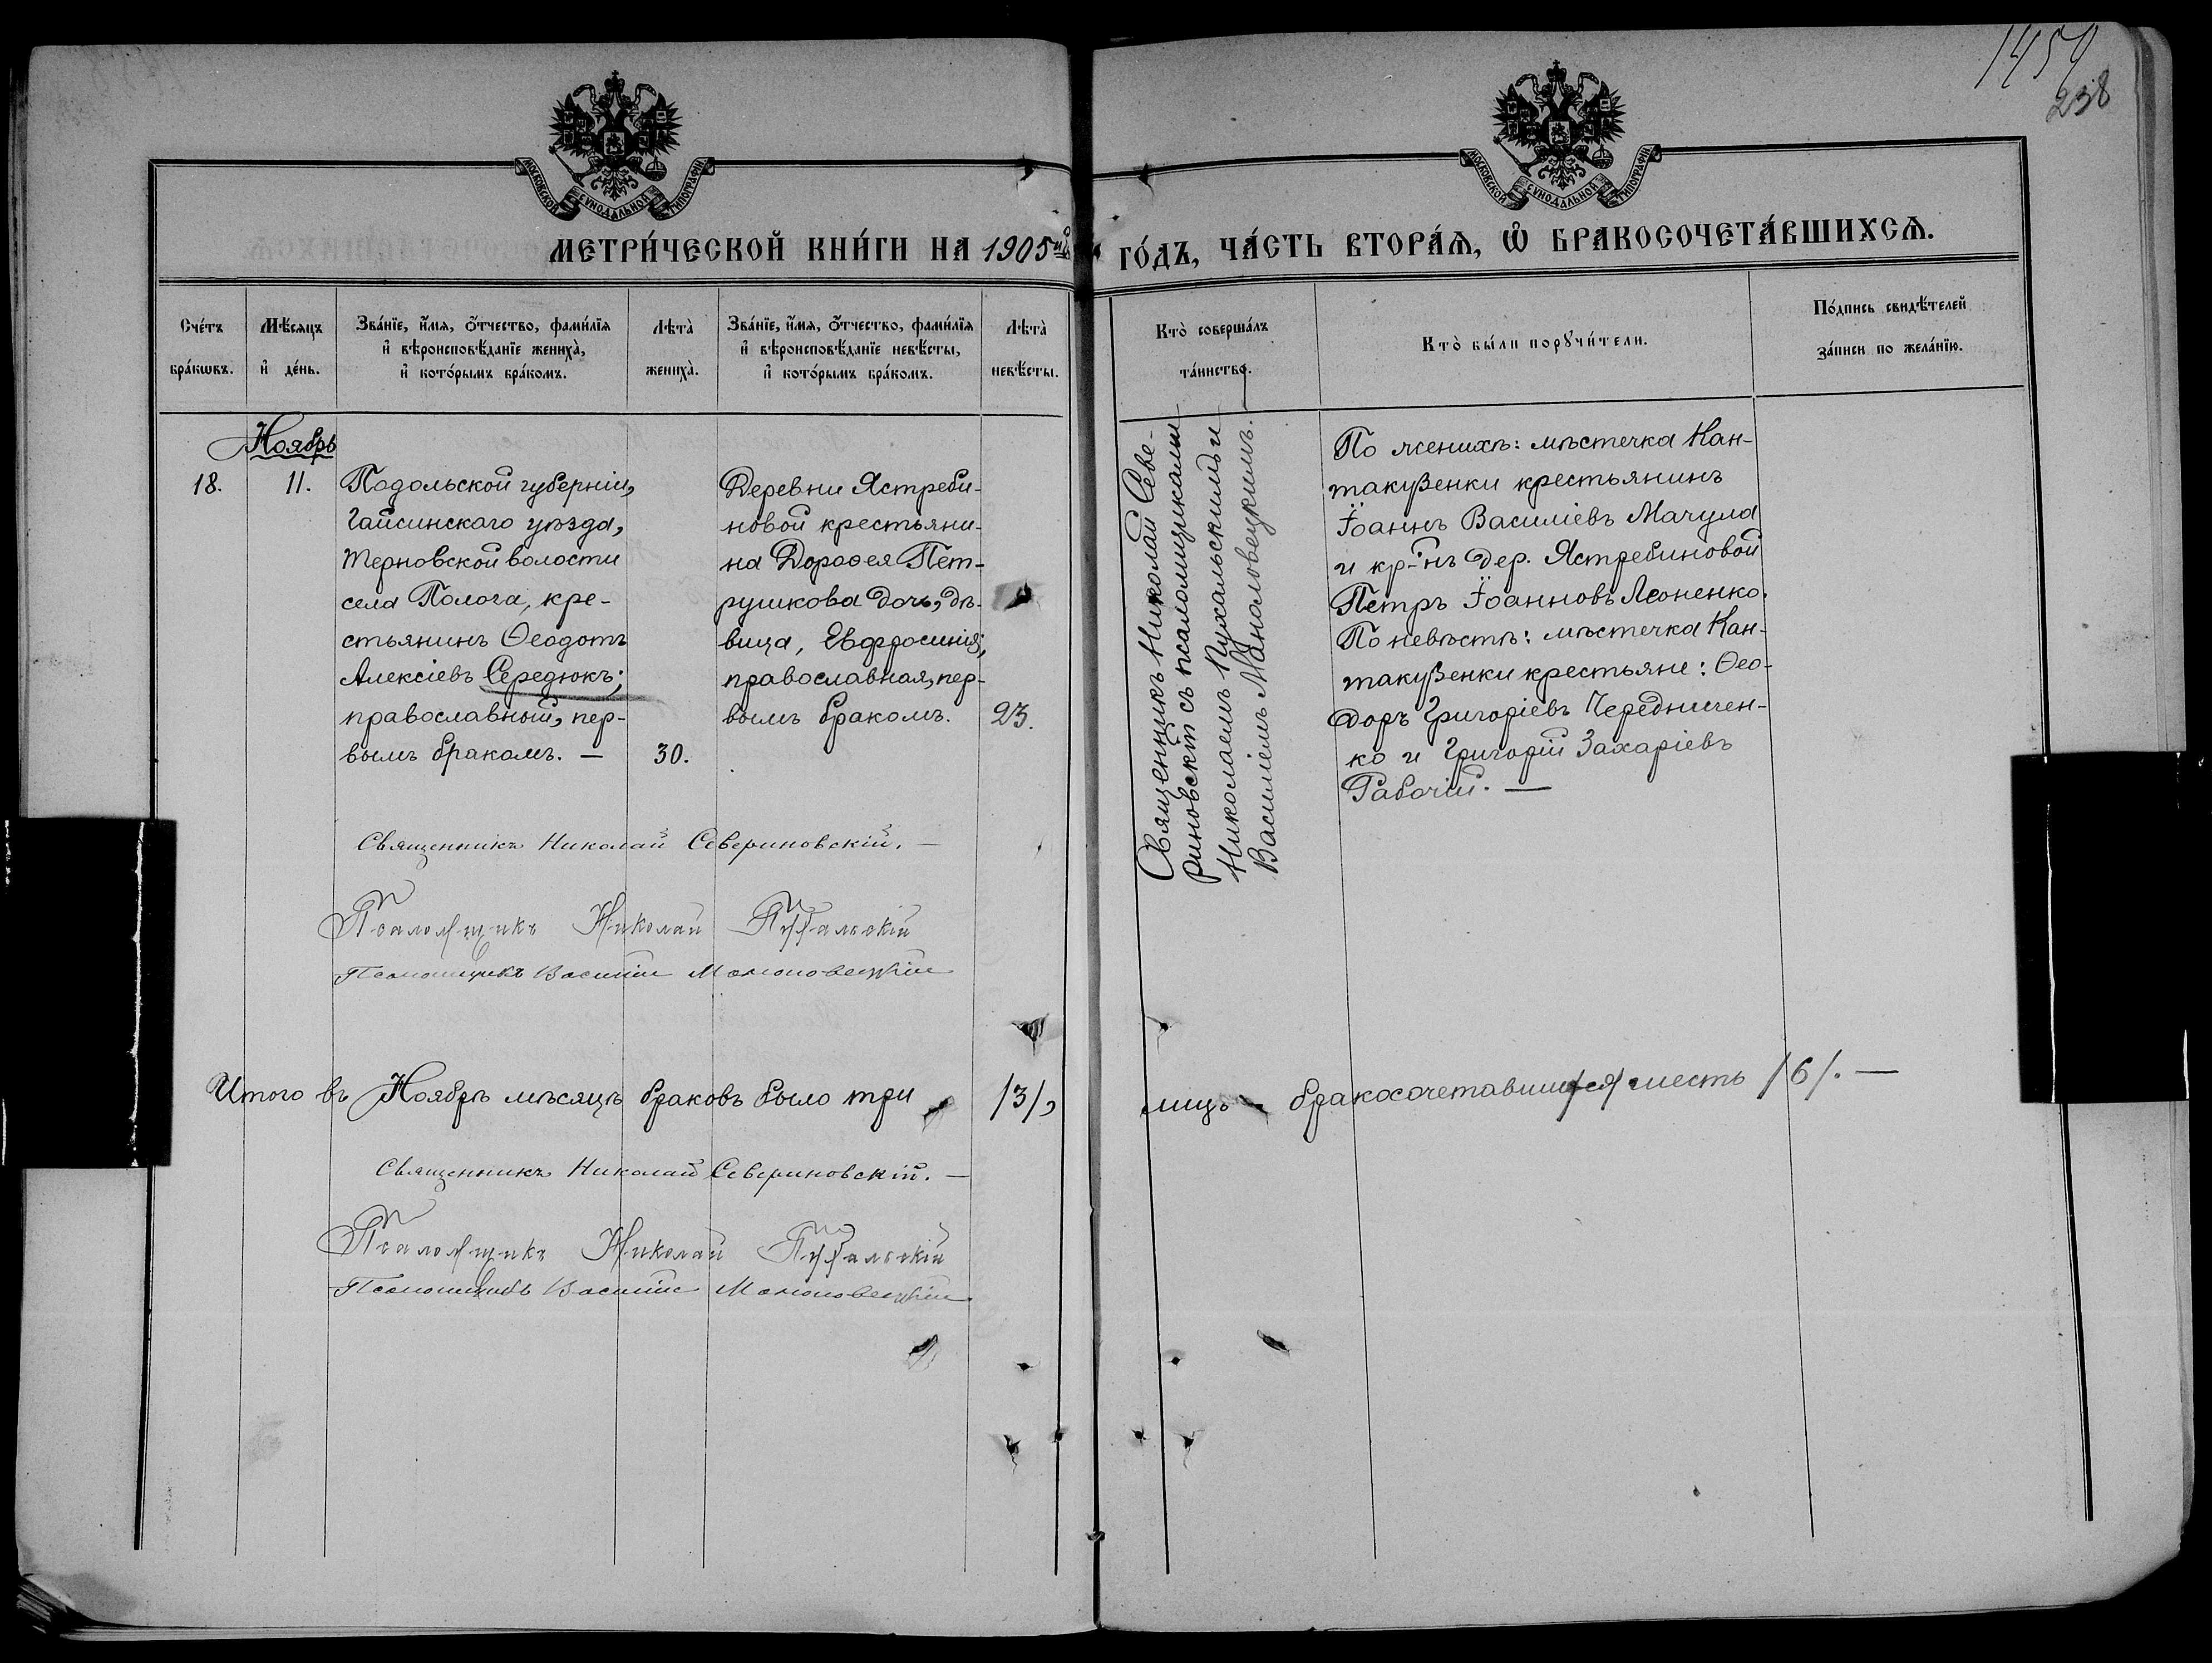 1459
238
МОСКОВСКОЙ СѴНОДАЛЬНОЙ ТИПОГРАФІИ
МОСКОВСКОЙ СѴНОДАЛЬНОЙ ТИПОГРАФІИ
МЕТРИ́ЧЕСКОЙ КНИ́ГИ НА 1905й
ГО́ДЪ, ЧА́СТЬ ВТОРА́Ѧ, Ѽ БРАКОСОЧЕТА́ВШИХСѦ.
Сче́тъ бра́кѡвъ.
Мѣ́сяцъ и҆ де́нь.
Зва́нїе, и҆́мя, о҆́тчество, фами́лїя
и҆ вѣроисповѣ́данїе жениха̀,
и҆ кото́рымъ бра́комъ.
Лѣта̀ жениха̀.
Зва́нїе, и҆́мя, о҆́тчество, фами́лїя
и҆ вѣроисповѣ́данїе невѣ́сты,
и҆ кото́рымъ бра́комъ.
Лѣта̀ невѣ́сты.
Кто̀ соверша́лъ
та́инство.
Кто̀ бы́ли порꙋчи́тели.
По́дпись свидѣ́телей
за́писи по жела́нїю.
Ноябрь
18.
11.
Подольской губерніи,
Гайсинскаго уѣзда,
Терновской волости
села Полога, кре-
стьянинъ Ѳеодотъ
Алексіевъ Середюкъ;
православный, пер-
вымъ бракомъ. —
30.
Деревни Ястреби-
новой крестьяни-
на Дороѳея Пет-
рушкова дочь, дѣ-
вица, Евфросинія,
православная, пер-
вымъ бракомъ.
23.
Священникъ Николай Севе-
риновскій съ псаломщиками
Николаемъ Пухальскимъ и
Василіемъ Маноловецкимъ.
По женихѣ: мѣстечка Кан-
такузенки крестьянинъ
Іоаннъ Василіевъ Мачула
и кр-нъ дер. Ястребиновой
Петръ Іоанновъ Леоненко.
По невѣстѣ: мѣстечка Кан-
такузенки крестьяне: Ѳео-
доръ Григоріевъ Чередничен-
ко и Григорій Захаріевъ
Рабочій. —
Священникъ Николай Севериновскій. —
Псаломщикъ Николай Пухальскій
Псаломщикъ Василій Маноловецкій
Итого въ Ноябрѣ мѣсяцѣ браковъ было три /3/,
лицъ бракосочетавшихся шесть /6/. —
Священникъ Николай Севериновскій. —
Псаломщикъ Николай Пухальскій
Псаломщикъ Василій Маноловецкій